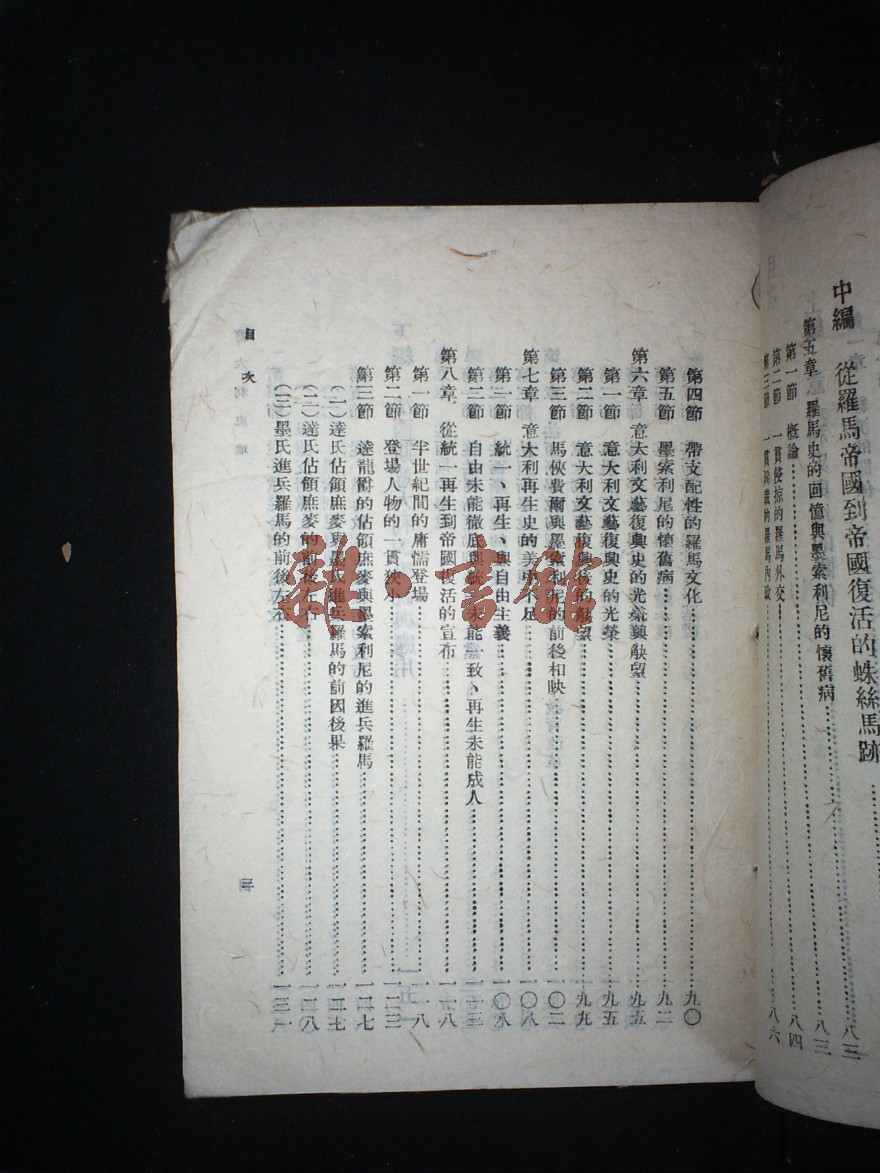 中編 從羅馬帝國到帝國復活的蛛絲馬跡……八三
第五章 羅馬史的回憶與墨索利尼的懷舊病……八三
第一節 概論……八四
第二節 一貫侵掠的羅馬外交……八六
第三節 一貫的羅馬內政
第四節 帶支配性的羅馬文化……九〇
第五節 墨索利尼的懷舊病……九二
第六章 意大利文藝復興史的光榮與觖望……九五
第一節 意大利文藝復興史的光榮……九五
第二節 意大利文藝復興後的觖望……九九
第三節 馬俠費爾與墨索利尼的前後相映……一〇二
第七章 意大利再生史的美中不足……一〇八
第一節 統一、再生、與自由主義……一〇八
第二節 自由未能徹底與統一未能一致、再生未能成人……一一三
第八章 從統一再生到帝國復活的宣布……一一八
第一節 半世紀間的庸懦登場……一一八
第二節 登場人物的一貫狹小……一二三
第三節 達龍爵的佔領庶麥與墨索利尼的進兵羅馬……一二七
(一)達氏佔領庶麥與墨氏進兵羅馬的前因後果……一二七
(二)達氏佔領庶麥的前後左右……一二八
(三)墨氏進兵羅馬的前後左右……一三一
目次
雅·言館